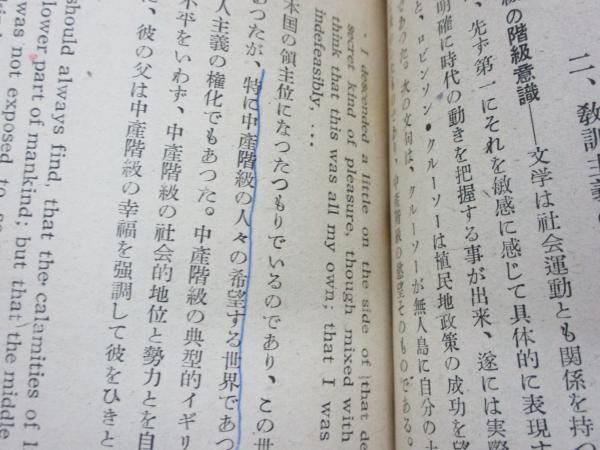 二、敎訓主義の
級の階級意識――文学は社会運動とも関係を持つ
、先ず第一にそれを敏感に感じて具体的に表現す
明確に時代の動きを把握する事が出来、遂には実際
と、ロビンソン・クルーソーは植民地政策の成功を望
であつた。次の文句は、クルーソーが無人島に自分の
中産階級の慾望そのものである。
· I descended a little on the side of that de
secret kind of pleasure, though mixed with
think that this was all my own; that I was
indefeasibly, ...
本国の領主位になつたつもりでいるのであり、この世
あつたが、特に中産階級の人々の希望する世界であつ
人主義の権化でもあつた。中産階級の典型的イギリ
不平をいわず、中産階級の社会的地位と勢力とを自
、彼の父は中産階級の幸福を強調して彼をひきと
should always find, that the calamities of l
lower part of mankind; but that the middle
was not exposed to so